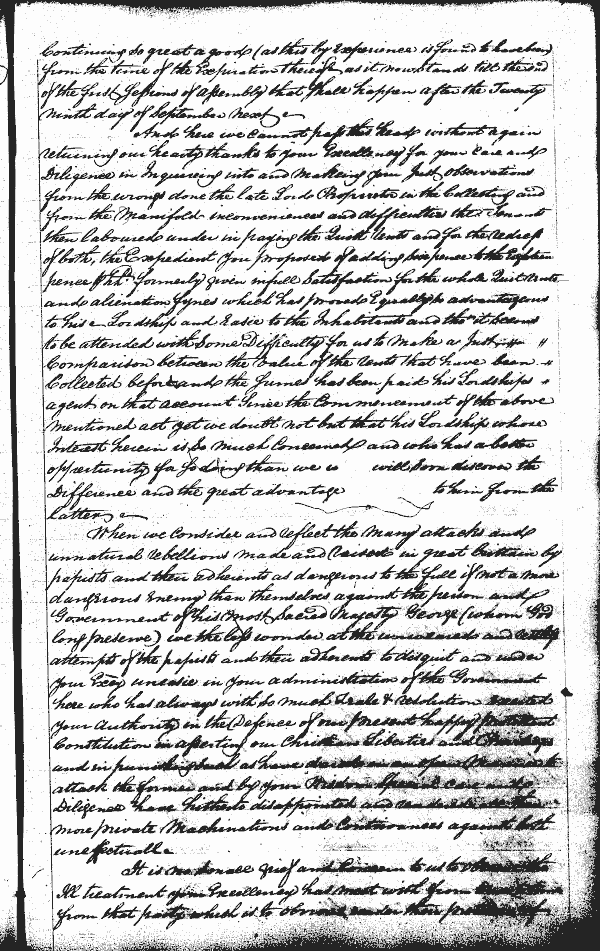 Continuing so great a good (as this by Experience is found to have been)
from the time of the Expiration thereof as it now stands till the end
of the first Sessions of Assembly that shall happen after the Twenty
ninth day of September next
And here we cannot pass this head without again
returning our hearty thanks to your Excellency for your Care and
Diligence in Inquireing into and makeing your Just observations
from the wrongs done the late Lords Proprietors in the Collecting and
from the Manifold inconveniences and difficulties the Tenants
then laboured under in paying the Quitt Rents and for the redress
of both, the Expedient you proposed of adding Sixpence to the Eighteen
pence formerly given in full Satisfaction for the whole Quit Rents
and alienation fynes which has proved Equally advantageous
to his Lordship and Easie to the Inhabitants and tho' it seems
to be attended with Some Difficulty for us to make a Just
Comparison between the Value of the Rents that have been
Collected before and the Sumes has been paid his Lordships
agent on that account Since the Commencement of the above
mentioned act yet we doubt not but that his Lordship whose
Interest herein is So much Concerned and who has a better
oppertunity of So doing than we will Soon discover the
Difference and the great advantage to him from the
latter
When we Consider and reflect the many attacks and
unnatural rebellions made and raised in great brittain by
papists and their adherents as dangerous to the full if not a more
dangerous Enemy than themselves against the person and
Government of his most Sacred Majesty George (whom God
long preserve) we the less wonder at the unwearied and
attempts of the papists and their adherents to disquit and under
your Excy uneasie in your administration of the Government
here who has always with so much Zeale & resolution Exerted
your Authority in the Defence of our present happy protestant
Constitution in asserting our Christian Liberties and
and in punishing such as have dared in an open Manner to
attack the former and by your Wisdom Special Care and
Diligence have hitherto disappointed and rendered all their
more private Machinations and Contrivances against both
uneffectuall
It is no small grief and Concern to us to observe the
Ill treatment your Excellency has meet with from
from that party which is to obvious under their